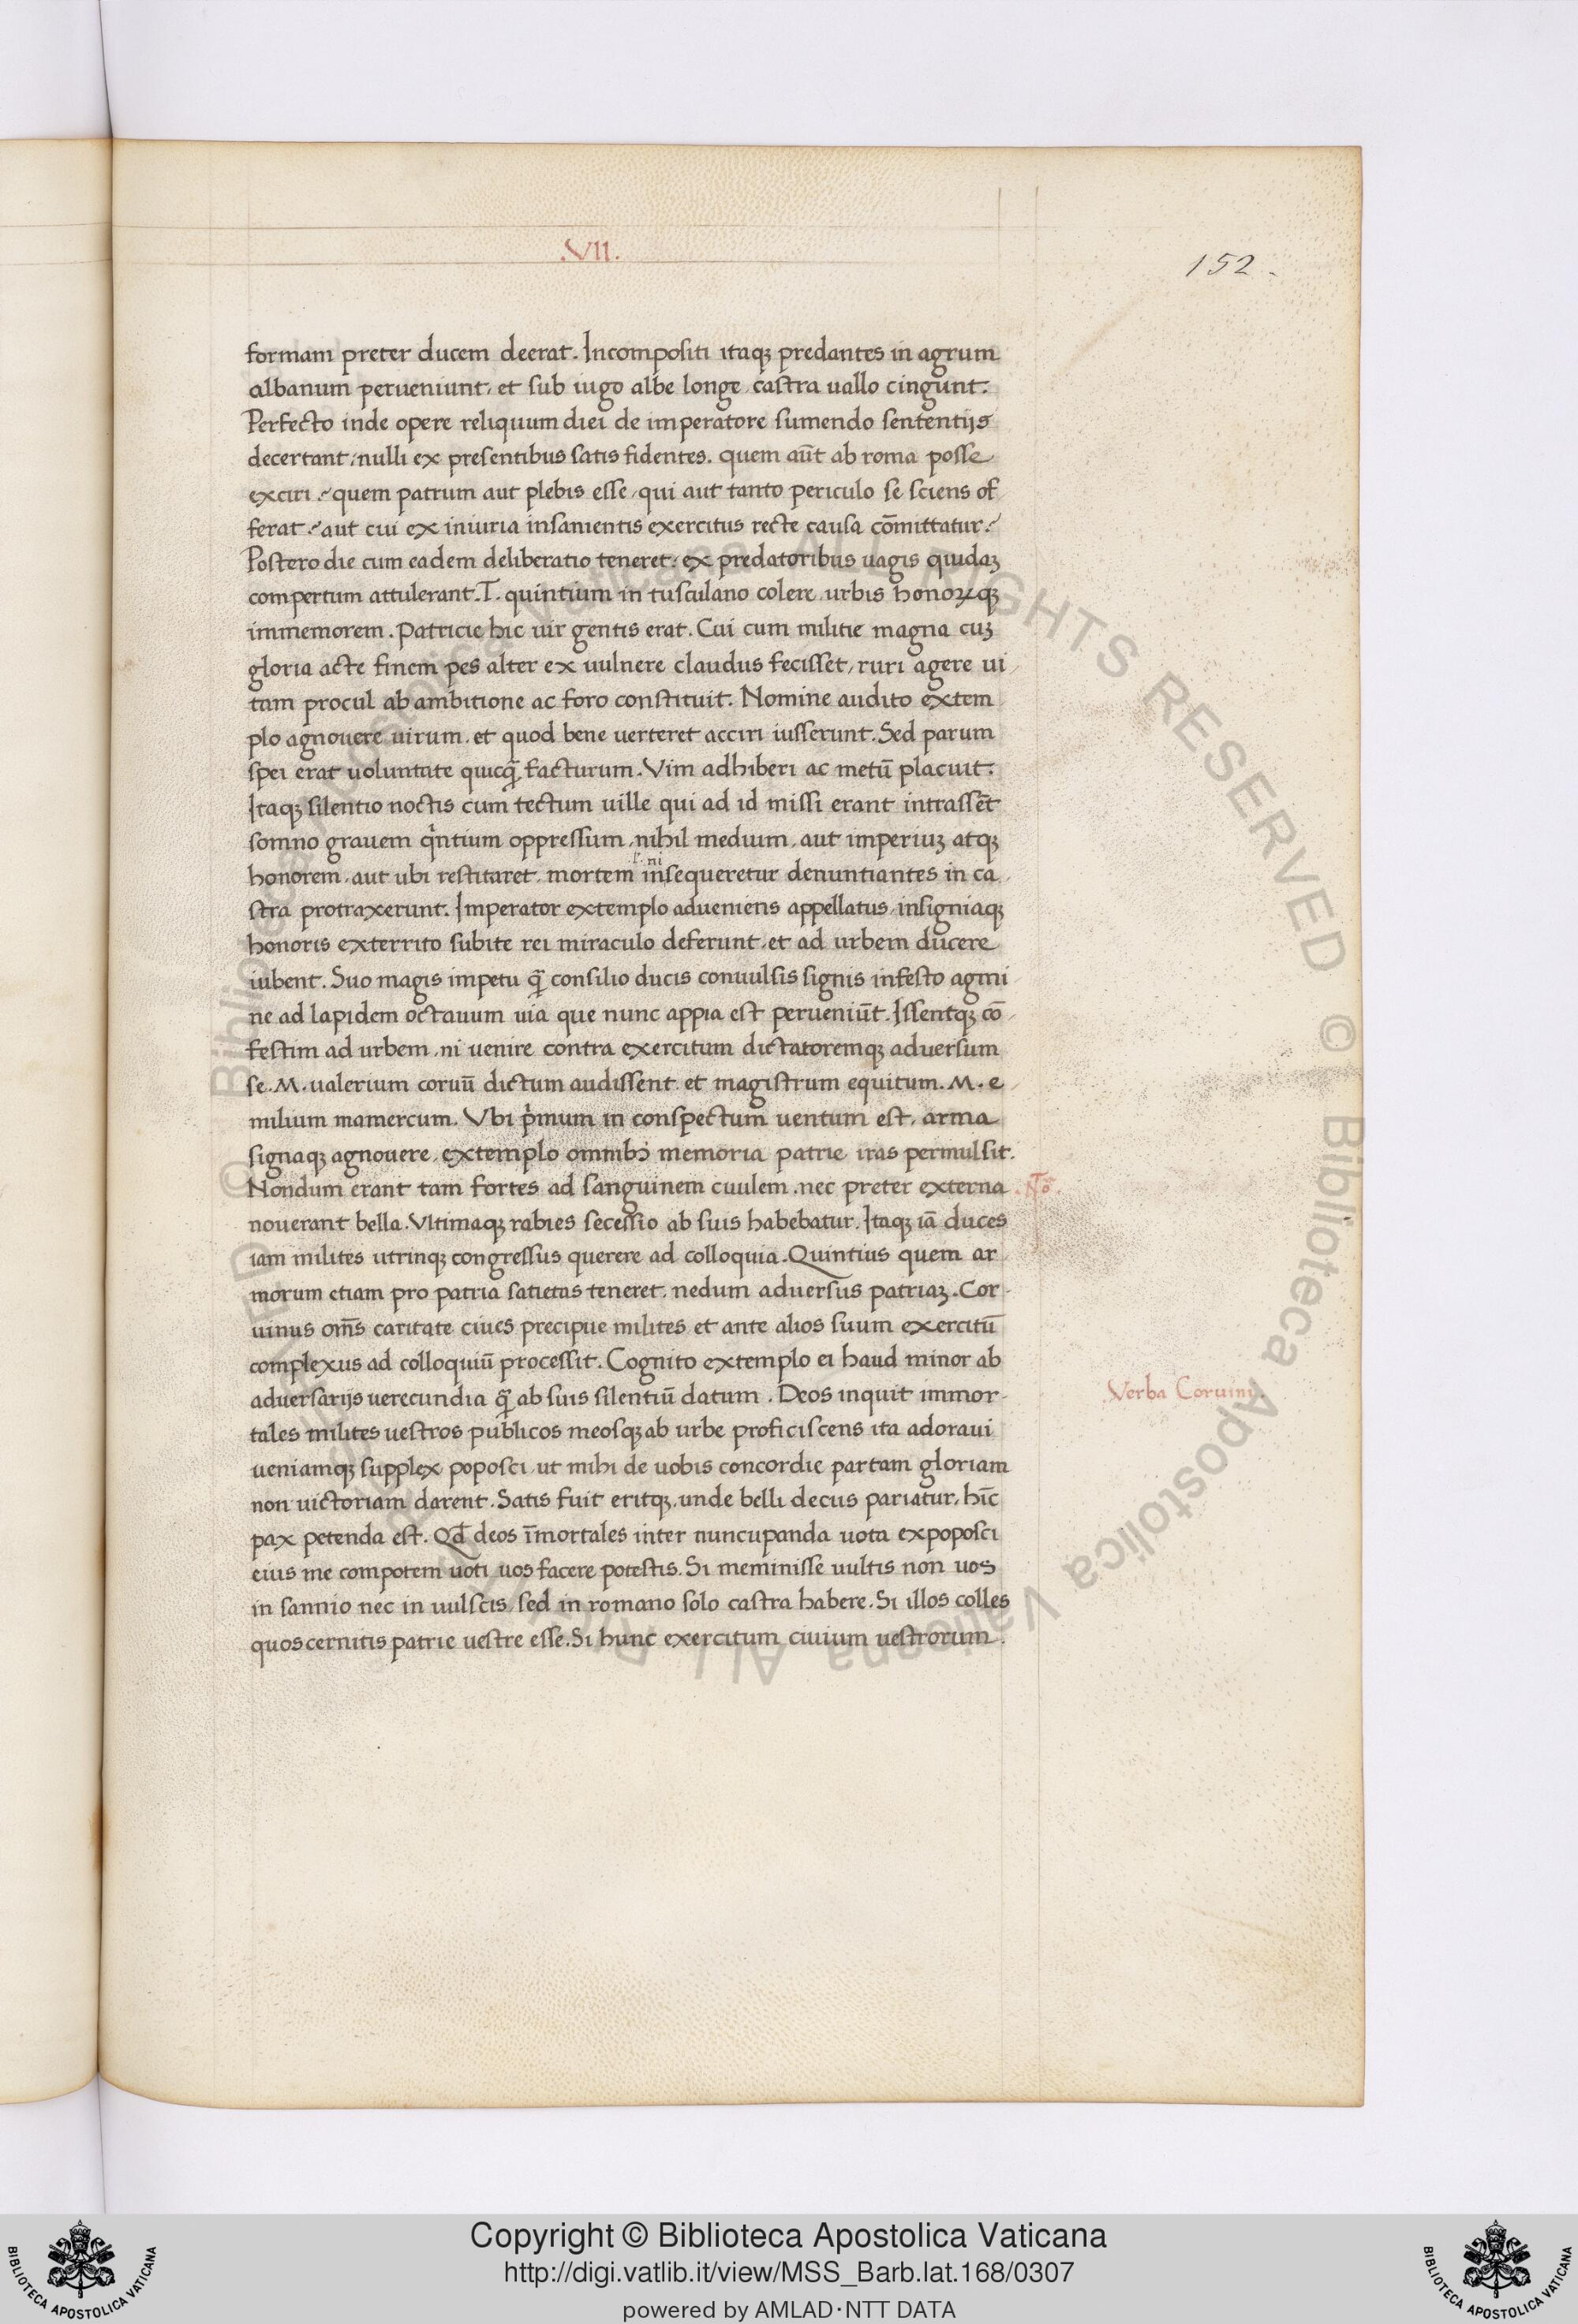 .VII.
152.
formam preter ducem deerat. Incompositi itaqꝫ predantes in agrum
albanum perueniunt, et sub iugo albe longe castra uallo cingunt.
Perfecto inde opere reliquum diei de imperatore sumendo sententijs
decertant, nulli ex presentibus satis fidentes. quem aūt ab roma posse
exciri? quem patrum aut plebis esse, qui aut tanto periculo se sciens of
ferat? aut cui ex iniuria insanientis exercitus recte causa cōmittatur?
Postero die cum eadem deliberatio teneret, ex predatoribus uagis quidaꝫ
compertum attulerant. T. quintium in tusculano colere, urbis honoꝝqꝫ
immemorem. Patricie hic uir gentis erat. Cui cum militie magna cuꝫ
gloria acte finem pes alter ex uulnere claudus fecisset, ruri agere ui
tam procul ab ambitione ac foro constituit. Nomine audito extem
plo agnouere uirum. et quod bene uerteret acciri iusserunt. Sed parum
spei erat uoluntate quicq̄ facturum. Vim adhiberi ac metū placuit.
Itaqꝫ silentio noctis cum tectum uille qui ad id missi erant intrassēt
somno grauem qͥntium oppressum, nihil medium, aut imperiuꝫ atqꝫ
honorem, aut ubi restitaret, mortem insequeretur denuntiantes in ca
s. ni
stra protraxerunt. Imperator extemplo adueniens appellatus, insigniaqꝫ
honoris exterrito subite rei miraculo deferunt, et ad urbem ducere
iubent. Suo magis impetu q̄ consilio ducis conuulsis signis infesto agmi
ne ad lapidem octauum uia que nunc appia est perueniūt. Issentqꝫ cō
festim ad urbem, ni uenire contra exercitum dictatoremqꝫ aduersum
se. M. ualerium coruū dictum audissent et magistrum equitum. M. e
milium mamercum. Vbi pͥmum in conspectum uentum est, arma
signaqꝫ agnouere, extemplo omnibꝰ memoria patrie iras permulsit.
Nondum erant tam fortes ad sanguinem ciuilem. nec preter externa
.Nō.
nouerant bella. Vltimaqꝫ rabies secessio ab suis habebatur. Itaqꝫ iā duces
iam milites utrinqꝫ congressus querere ad colloquia. Quintius quem ar
morum etiam pro patria satietas teneret, nedum aduersus patriaꝫ. Cor-
uinus om̄s caritate ciues precipue milites et ante alios suum exercitū
complexus ad colloquiū processit. Cognito extemplo ei haud minor ab
aduersarijs uerecundia q̄ ab suis silentiū datum. Deos inquit immor-
.Verba Coruini.
tales milites uestros publicos meosqꝫ ab urbe proficiscens ita adoraui
ueniamqꝫ supplex poposci, ut mihi de uobis concordie partam gloriam
non uictoriam darent. Satis fuit eritqꝫ, unde belli decus pariatur, hīc
pax petenda est. Qd̄ deos īmortales inter nuncupanda uota expoposci
eius me compotem uoti uos facere potestis. Si meminisse uultis non uos
in sannio nec in uulscis, sed in romano solo castra habere. Si illos colles
quos cernitis patrie uestre esse. Si hunc exercitum ciuium uestrorum.
Copyright © Biblioteca Apostolica Vaticana
http://digi.vatlib.it/view/MSS_Barb.lat.168/0307
powered by AMLAD·NTT DATA